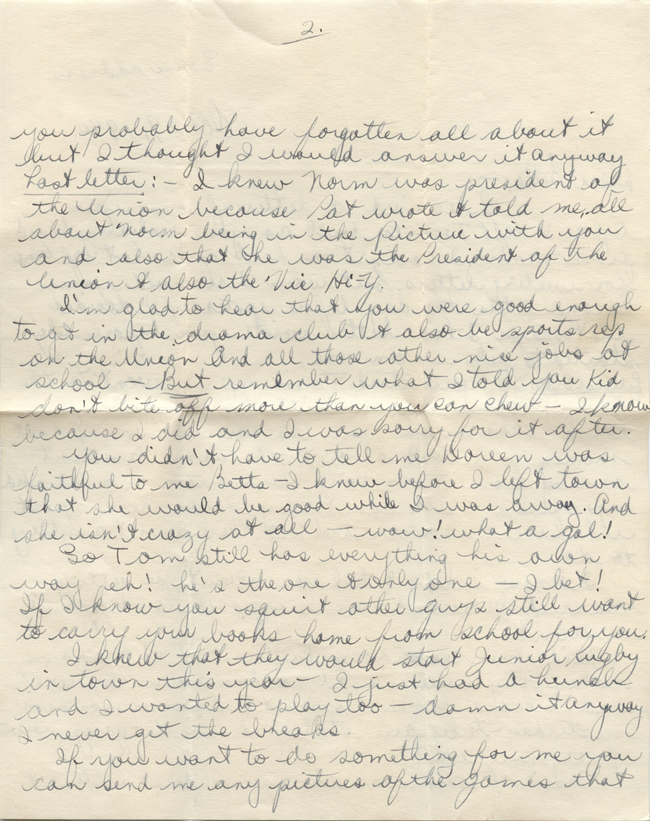 2.
you probably have forgotten all about it
but I thought I would answer it anyway
Last letter:- I knew Norm was president of
the Union because Pat wrote & told me all
about Norm being in the Picture with you
and also that she was the President of the
Union & also the Vic Hi-Y.
I'm glad to hear that you were good enough
to get in the drama club & also be sports rep
on the Union and all those other nice jobs at
school - But remember what I told you Kid
don't bite off more than you can chew - I know
because I did and I was sorry for it after.
You didn't have to tell me Doreen was
faithful to me Betts - I knew before I left town
that she would be good while I was away. And
she isn't crazy at all - wow! what a gal!
So Tom still has everything his own
way eh! he's the one & only one - I bet!
If I know you squirt other guys still want
to carry your books home from school for you.
I knew that they would start Junior rugby
in town this year - I just had a hunch
and I wanted to play too - damn it anyway
I never get the breaks.
If you want to do something for me you
can send me any pictures of the games that